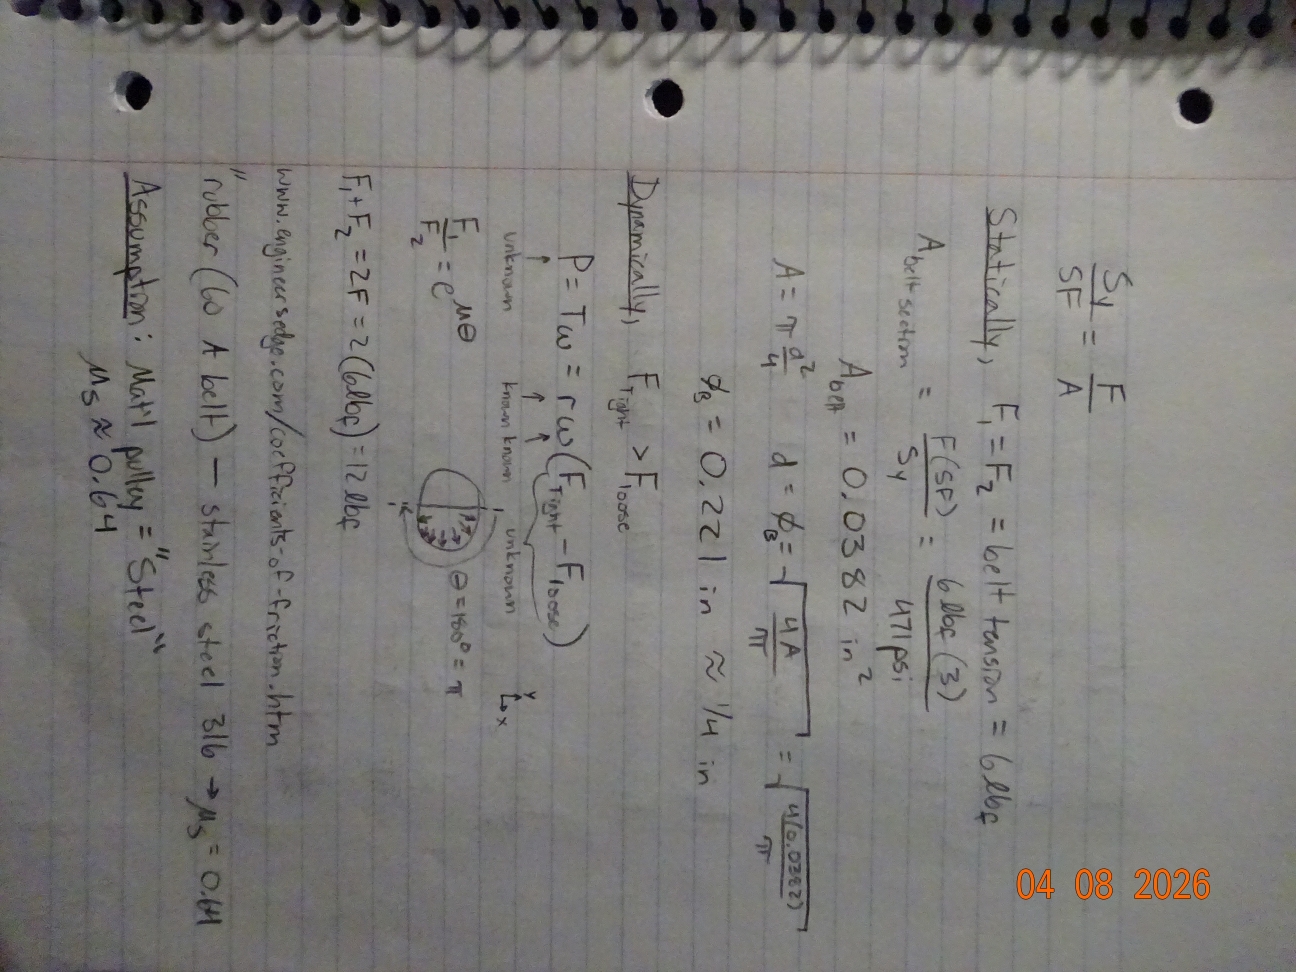 Sy/SF = F/A
Statically, F₁ = F₂ = belt tension = 6 lbf
A belt section = F(SF)/Sy = 6 lbf (3)/471 psi
A belt = 0.0382 in²
A = π d²/4 d = ϕB = √(4A/π) = √(4(0.0382)/π)
ϕB = 0.221 in ≈ 1/4 in
Dynamically, F Tight > F loose
P = Tω = rω(F Tight − F loose)
↑ ↑ ↑
unknown known known unknown
y x
F₁/F₂ = e^μθ θ = 180° = π
F₁ + F₂ = 2F = 2(6 lbf) = 12 lbf
www.engineersedge.com/coefficients-of-friction.htm
"rubber (60 A belt) — stainless steel 316 → μs = 0.64
Assumption: Mat'l pulley = "Steel"
μs ≈ 0.64
04 08 2026